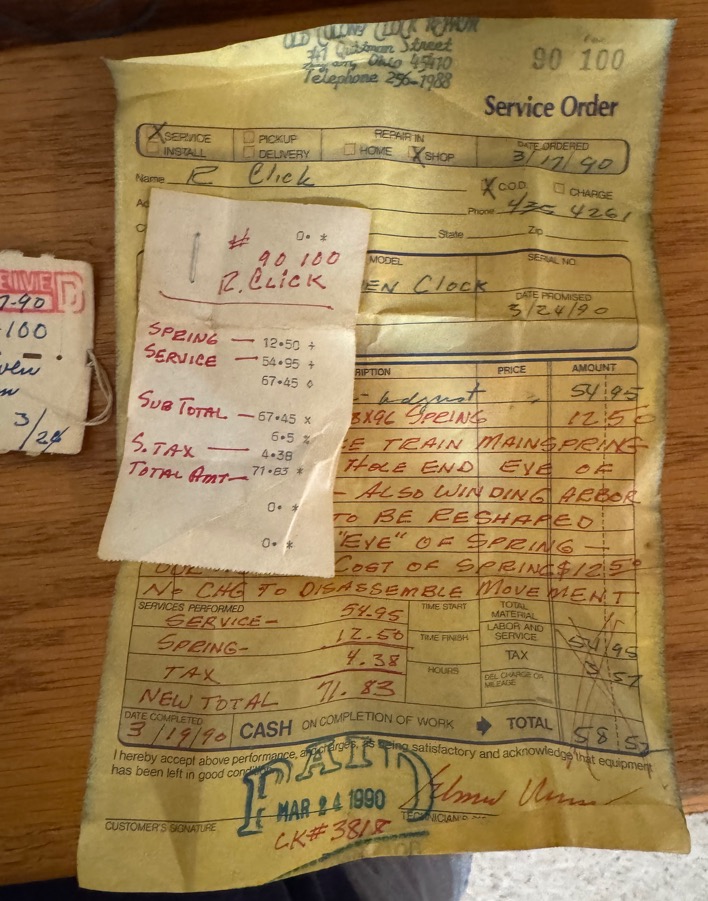 OLD COLONY CLOCK REPAIR
Street
Ohio 45410
Telephone 256-1988
90 100
Service Order
X SERVICE
INSTALL
PICKUP
DELIVERY
REPAIR IN
HOME X SHOP
DATE ORDERED
3/17/90
Name R Click
X C.O.D. CHARGE
Phone 435 4261
State Zip
MODEL
SERIAL NO.
EN Clock
DATE PROMISED
3/24/90
RIPTION PRICE AMOUNT
- adjust 54 95
3X96 SPRING 12 50
E TRAIN MAINSPRING
HOLE END EYE OF
- ALSO WINDING ARBOR
TO BE RESHAPED
"EYE" OF SPRING -
COST OF SPRING $12.50
NO CHG TO DISASSEMBLE MOVEMENT
SERVICES PERFORMED
SERVICE- 54.95
SPRING- 12.50
TAX 4.38
NEW TOTAL 71.83
TIME START
TIME FINISH
HOURS
TOTAL MATERIAL
LABOR AND SERVICE 54 95
TAX 3 57
DEL. CHARGE OR MILEAGE
DATE COMPLETED
3/19/90
CASH ON COMPLETION OF WORK TOTAL 58 52
I hereby accept above performance, and charges, as being satisfactory and acknowledge that equipment
has been left in good condition.
PAID
MAR 24 1990
CK# 3818
CUSTOMER'S SIGNATURE
TECHNICIAN
0. *
# 90 100
R. CLICK
SPRING — 12.50 +
SERVICE — 54.95 +
67.45 ◊
SUB TOTAL — 67.45 x
6.5 %
S. TAX — 4.38
TOTAL AMT — 71.83 *
0. *
0. *
-90
-100
3/24